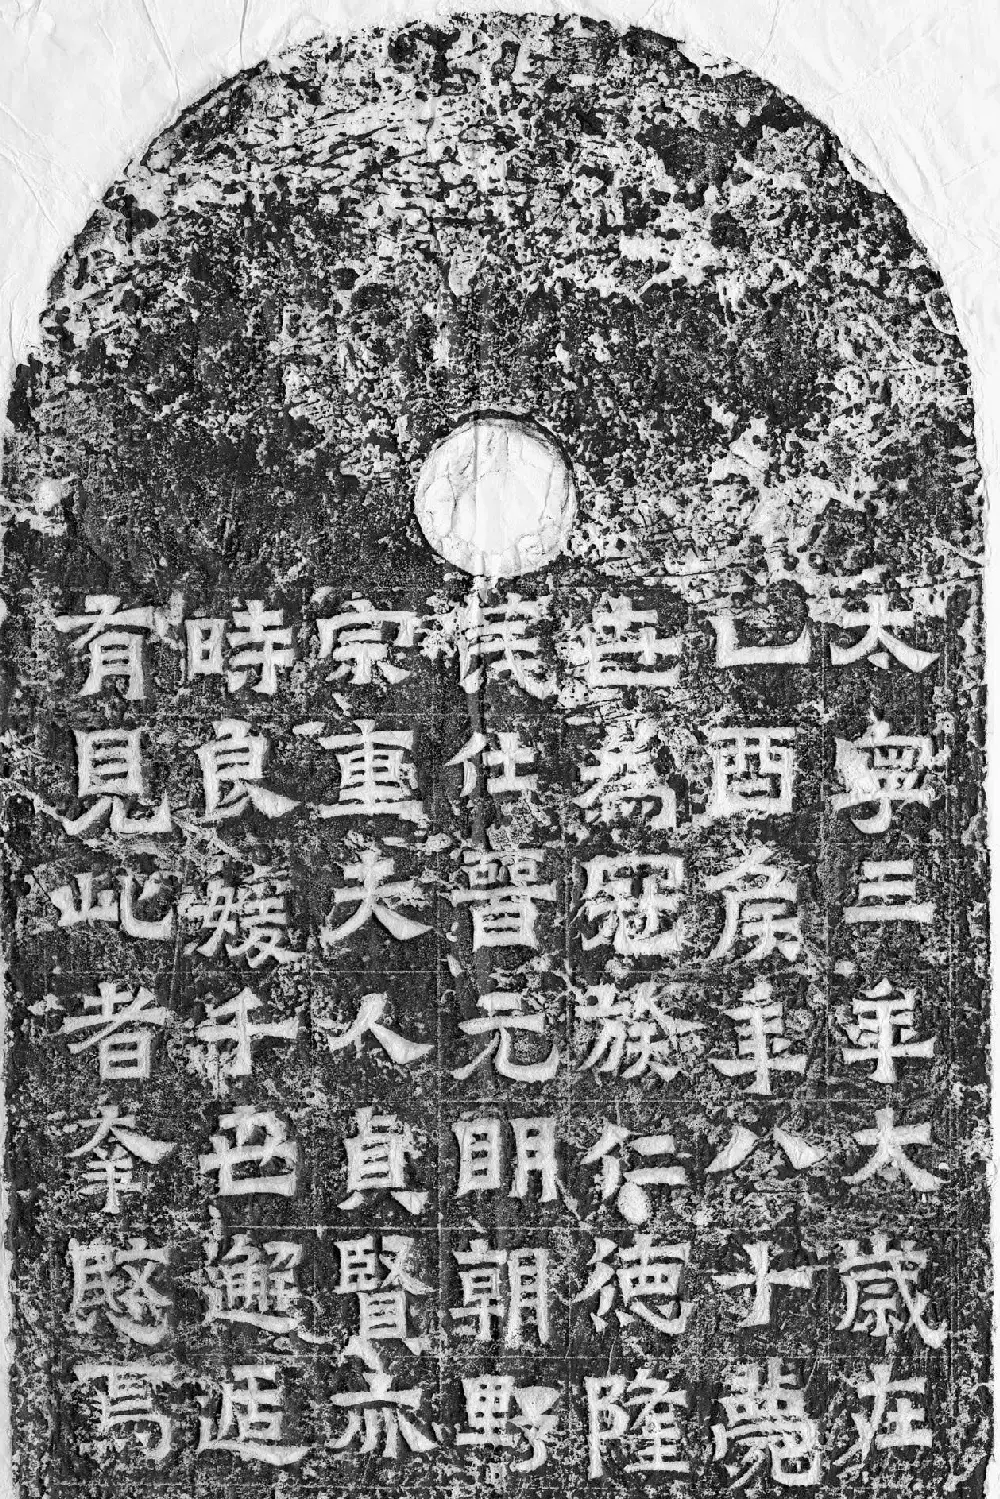 太寧三年太歲在
乙酉矦年八十薨
世為冠族仁德隆
茂仕晉元明朝野
宗重夫人貞賢亦
時良媛千世邂逅
有見此者幸愍焉